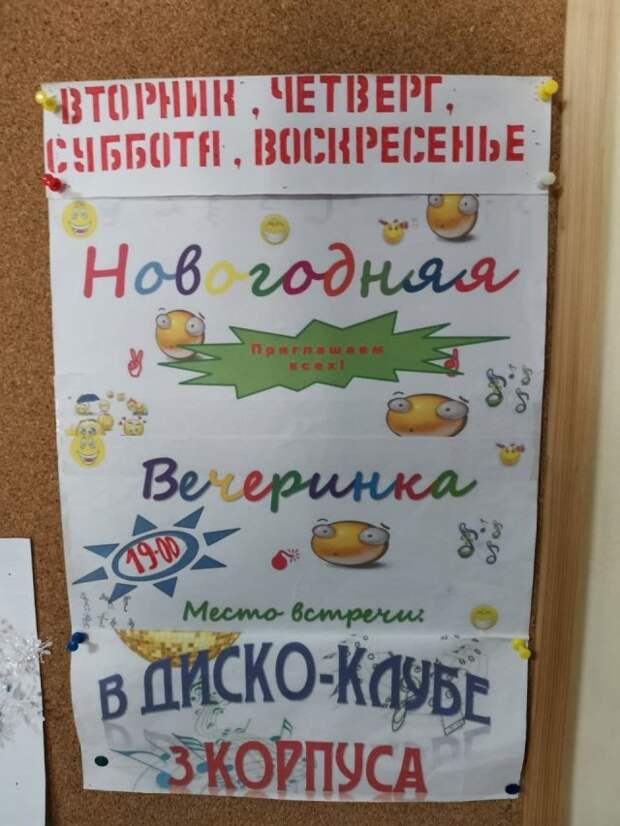 ВТОРНИК, ЧЕТВЕРГ,
СУББОТА, ВОСКРЕСЕНЬЕ
Новогодняя
Приглашаем
всех!
Вечеринка
19-00
Место встречи:
В ДИСКО-КЛУБЕ
3 КОРПУСА